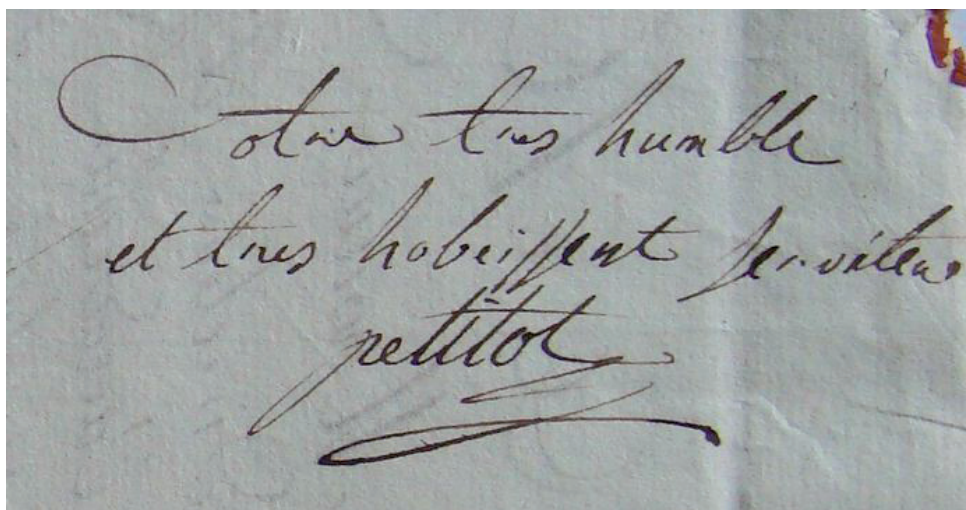 Votre tres humble
et tres hobeissent serviteur
petitot